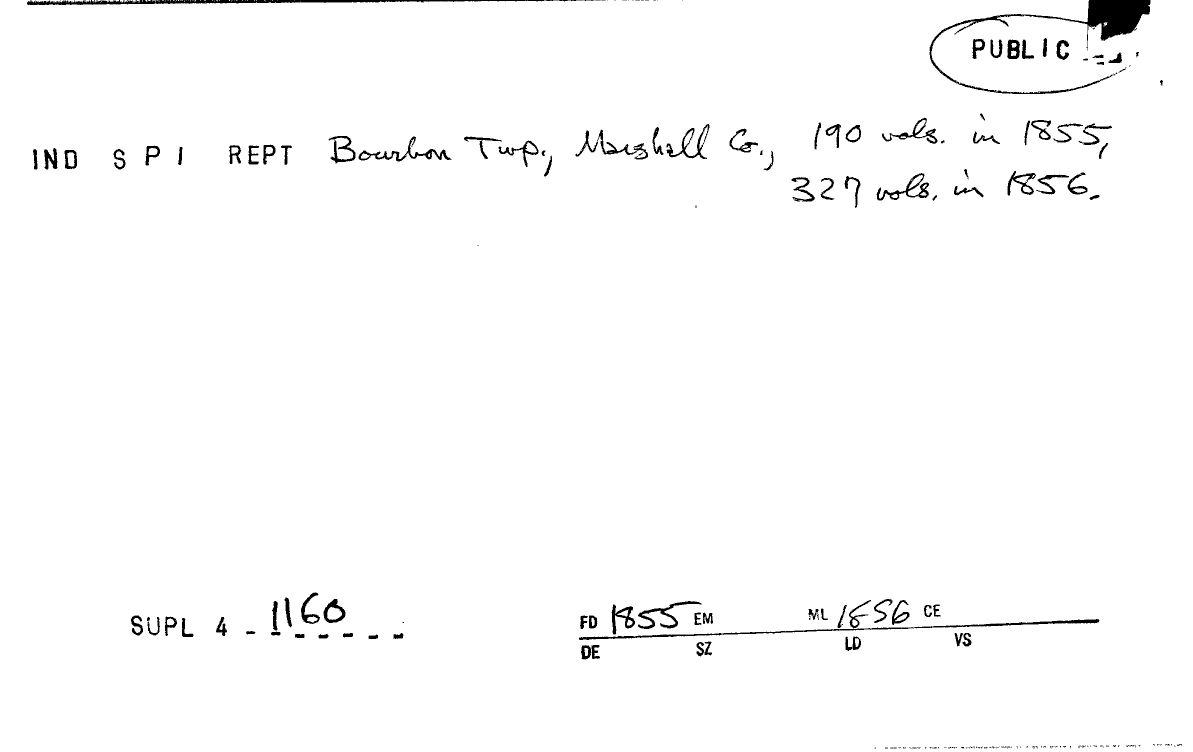 PUBLIC
IND S P I REPT Bourbon Twp., Marshall Co., 190 vols. in 1855,
327 vols. in 1856.
SUPL 4 - 1160
FD 1855 EM ML 1856 CE
DE SZ LD VS